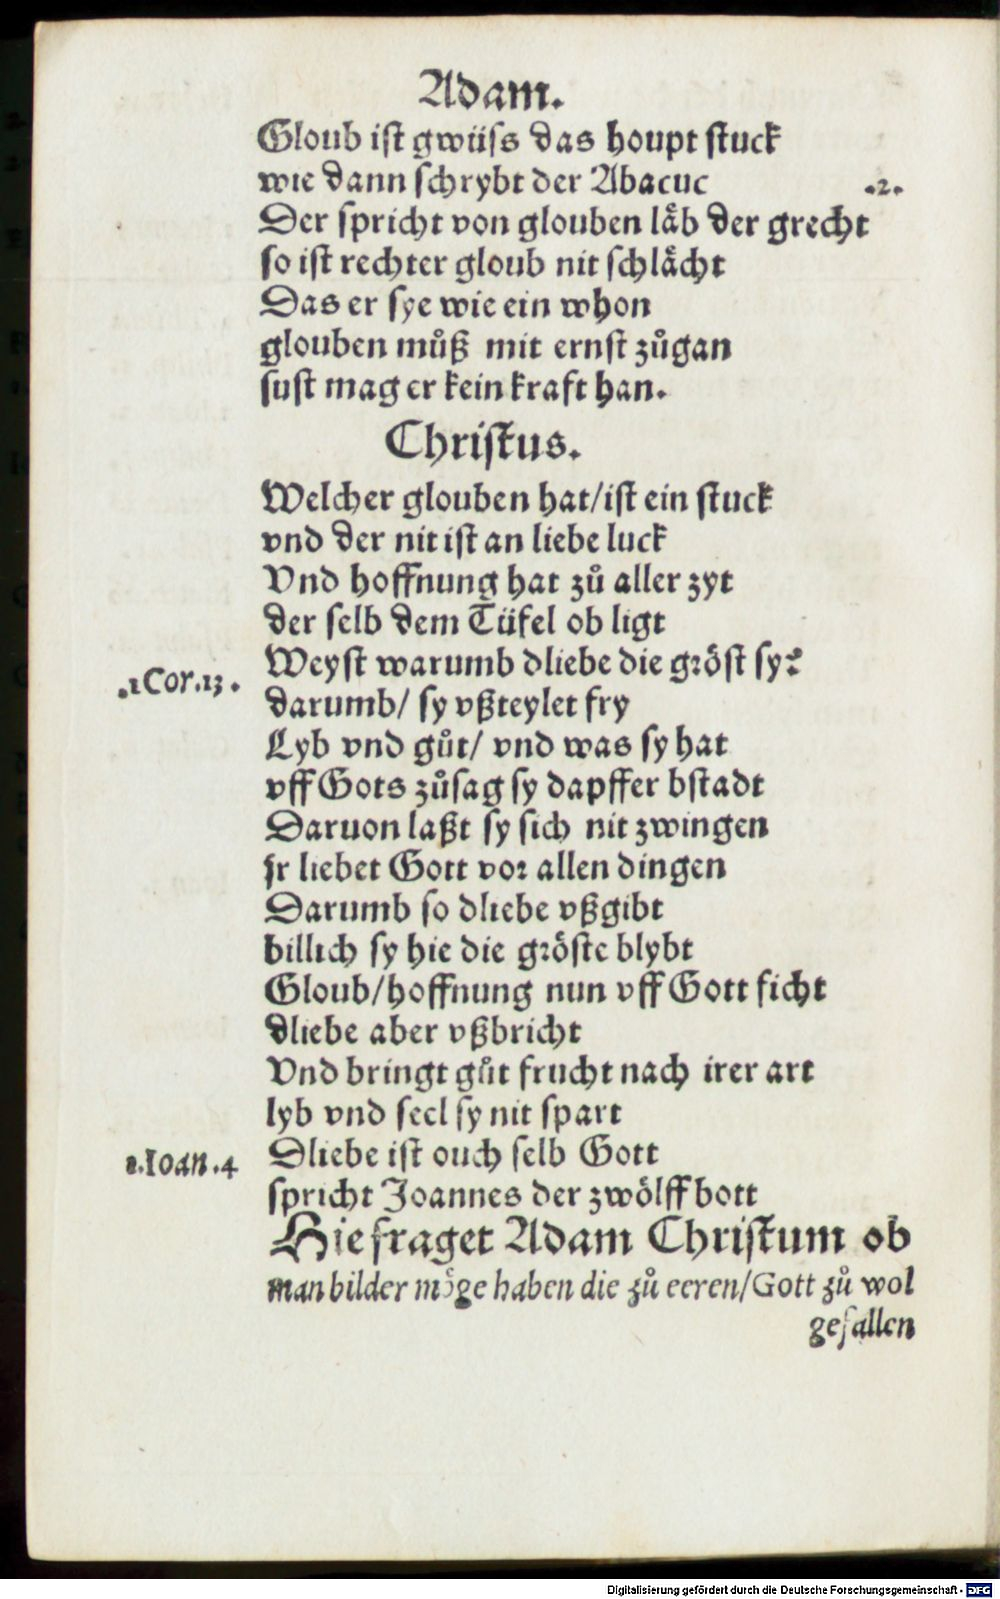 Adam.
Gloub ist gwüss das houpt stuck
wie dann schrybt der Abacuc .2.
Der spricht von glouben låb der grecht
so ist rechter gloub nit schlächt
Das er sye wie ein whon
glouben můß mit ernst zůgan
sust mag er kein kraft han.
Christus.
Welcher glouben hat/ist ein stuck
vnd der nit ist an liebe luck
Vnd hoffnung hat zů aller zyt
der selb dem Tüfel ob ligt
Weyst warumb dliebe die gröst sy?
.1Cor.13.
darumb/ sy vßteylet fry
Lyb vnd gůt/ vnd was sy hat
vff Gots zůsag sy dapffer bstadt
Daruon laßt sy sich nit zwingen
jr liebet Gott vor allen dingen
Darumb so dliebe vßgibt
billich sy hie die gröste blybt
Gloub/hoffnung nun vff Gott sicht
dliebe aber vßbricht
Vnd bringt gůt frucht nach irer art
lyb vnd seel sy nit spart
1.Ioan.4 Dliebe ist ouch selb Gott
spricht Joannes der zwölffbott
Hie fraget Adam Christum ob
man bilder möge haben die zů eeren/Gott zů wol
gefallen
Digitalisierung gefördert durch die Deutsche Forschungsgemeinschaft - DFG